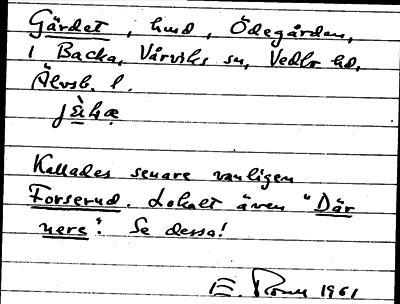 Gärdet, hmd, Ödegården,
1 Backa, Vårviks sn, Vedbo hd,
Älvsb. l.
Kallades senare vanligen
Forserud. Lokalt även "Där
nere". Se dessa!
E. 1961